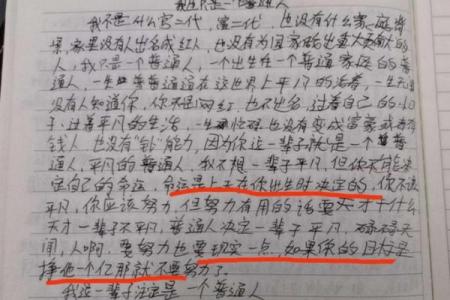 我只不是一个普通人
我不是什么官二代，富二代，也没有什么家庭背
景，家里没有人出名成红人，也没有为国家做出重大贡献的
人，我只是一个普通人，一个出生在一个普通家庭的普
通人，一生普普通通在这世界上平凡的活着，一生无
没有人知道你，你不是网红，也不出名，过着自己的小日
子，过着平凡的生活，一生忙碌也没有变成富豪或者有
钱人，也没有"钞"能力，因为你这一辈子就是一个普
通人，平凡的普通人，我不想一辈子平凡，但你不能决
定自己的命运，命运是上天在你出生时决定的，你不该
平凡，你应该努力，但努力有用的话要天才干什么
天才一辈子不平凡，普通人决定一辈子平凡，碌碌无
闻，人啊，要努力也要现实一点，如果你的目标是
挣他一个亿那就不要努力了。
我这一辈子注定是一个普通人